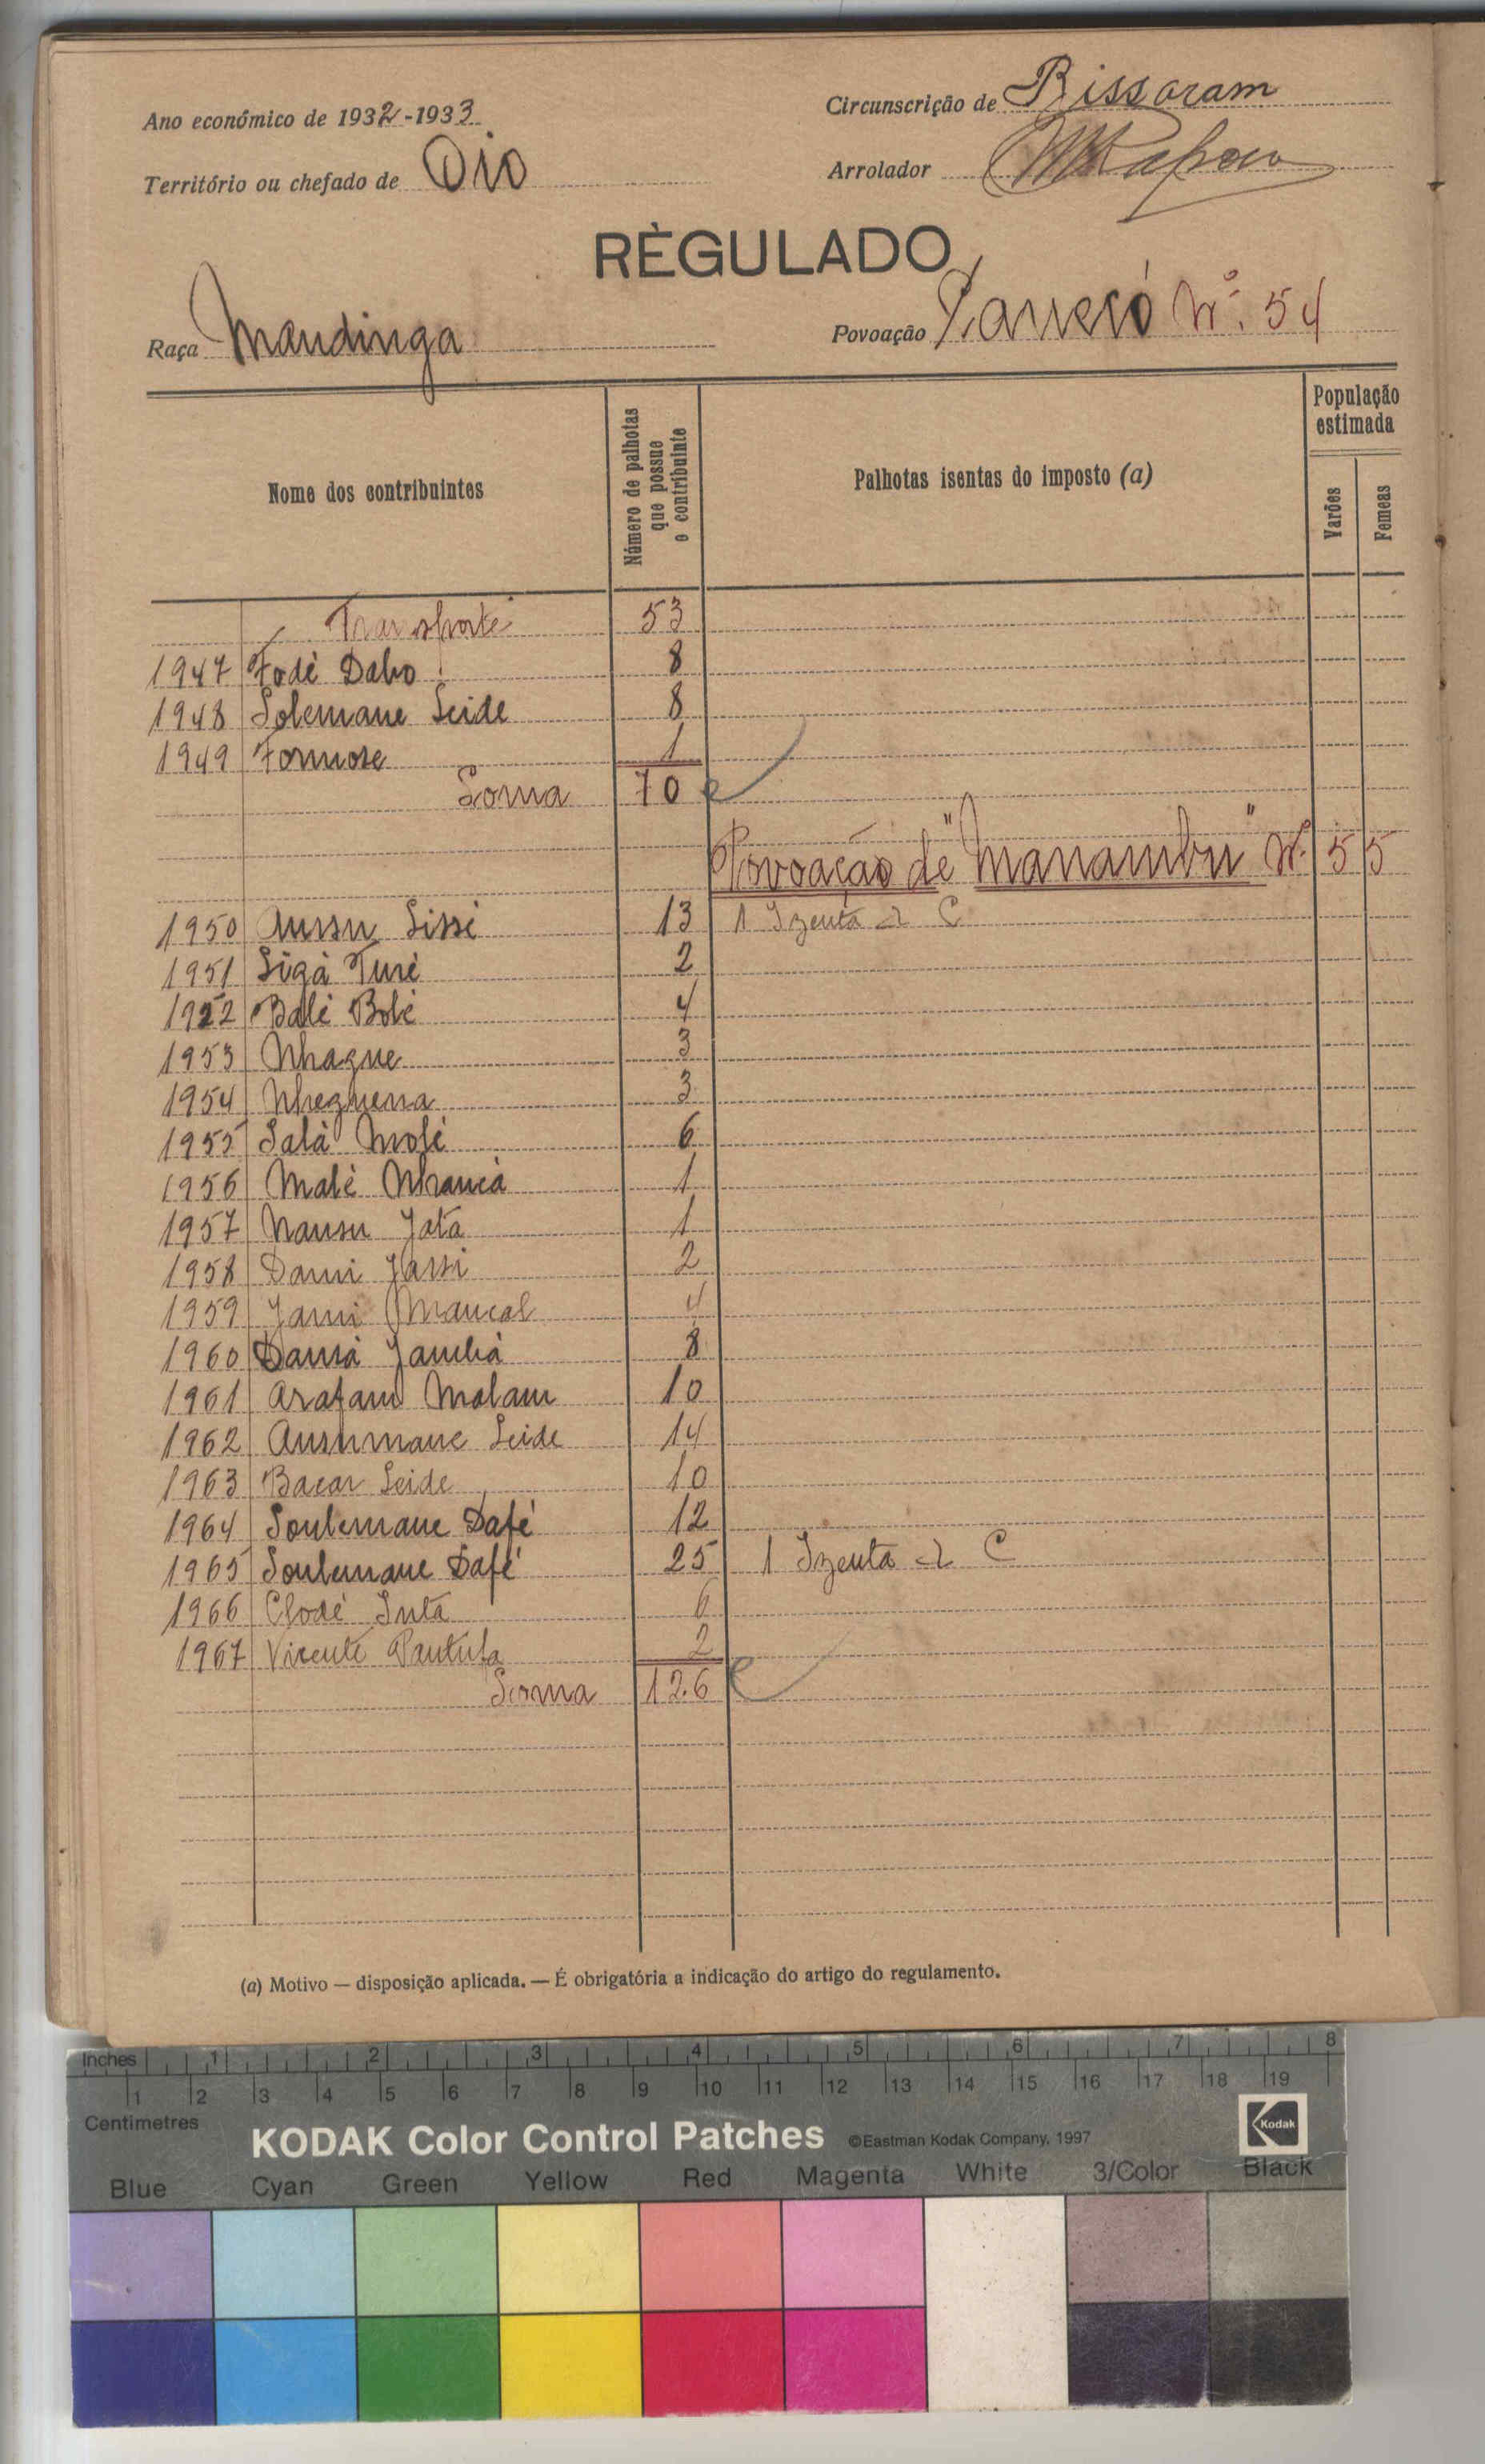 Ano económico de 1932-1933
Circunscrição de Bissoram
Território ou chefado de Oio
Arrolador
RÈGULADO
Raça Mandinga
Povoação Nº 54
Nome dos contribuintes
Número de palhotas que possue o contribuinte
Palhotas isentas do imposto (a)
População estimada
Varões
Femeas
Transporte 53
1947 Fodé Dabo 8
1948 Solemane Seide 8
1949 Formose 1
Soma 70
Povoação de "Manambu" Nº 55
1950 Aussu Sissé 13 1 Izenta C
1951 Sigà Turé 2
1952 Balé Bolé 4
1953 Nhague 3
1954 Nheguena 3
1955 Salà Molé 6
1956 Malé Nhancà 1
1957 Nansu Jata 1
1958 Dami Jassi 2
1959 Jami Mancal 4
1960 Dansà Jambà 8
1961 Arafam Malam 10
1962 Ansumane Seide 14
1963 Bacar Seide 10
1964 Soulemane Dafé 12
1965 Soulemane Dafé 25 1 Izenta C
1966 Clodé Inta 6
1967 Vicente 2
Soma 126
(a) Motivo — disposição aplicada. — É obrigatória a indicação do artigo do regulamento.
Inches 1 2 3 4 5 6 7 8
1 2 3 4 5 6 7 8 9 10 11 12 13 14 15 16 17 18 19
Centimetres
KODAK Color Control Patches ©Eastman Kodak Company, 1997 Kodak
Blue Cyan Green Yellow Red Magenta White 3/Color Black